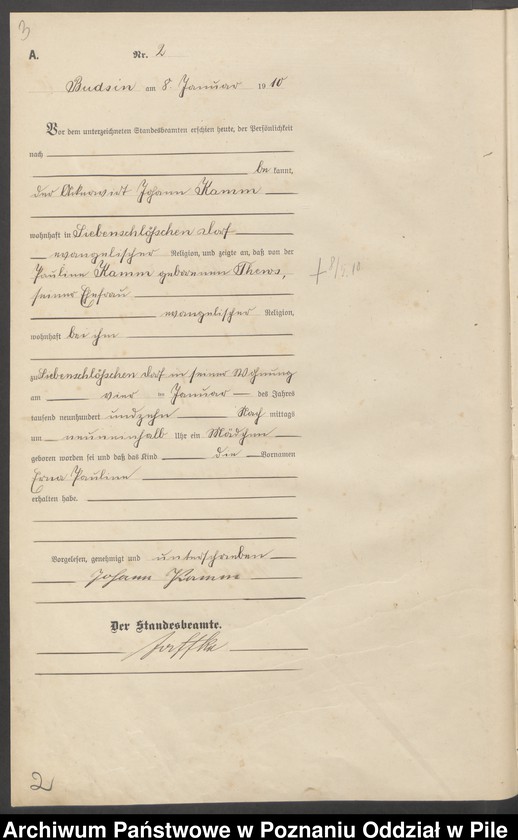 3
A. Nr. 2
Budsin am 8. Januar 1910
Vor dem unterzeichneten Standesbeamten erschien heute, der Persönlichkeit
nach
be kannt,
der Ackerwirt Johann Kamm
wohnhaft in Liebenschlößchen Dorf
evangelischer Religion, und zeigte an, daß von der
Pauline Kamm geborenen Thews,
seiner Ehefrau
+ 8/5.10
evangelischer Religion,
wohnhaft bei ihm
zu Liebenschlößchen Dorf in seiner Wohnung
am vier ten Januar des Jahres
tausend neunhundert und zehn Nach mittags
um neuneinhalb Uhr ein Mädchen
geboren worden sei und daß das Kind die Vornamen
Erna Pauline
erhalten habe.
Vorgelesen, genehmigt und unterschrieben
Johann Kamm
Der Standesbeamte.
2
Archiwum Państwowe w Poznaniu Oddział w Pile